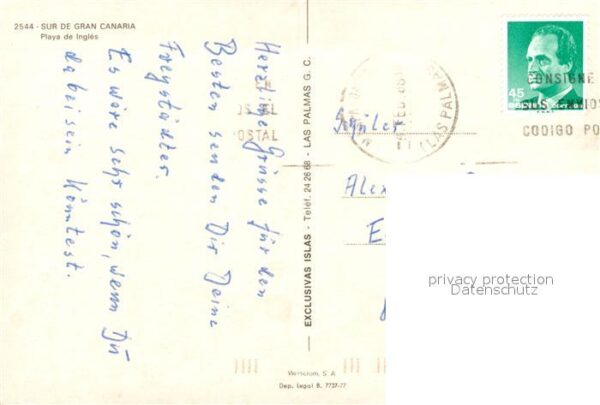 2544 - SUR DE GRAN CANARIA
Playa de Inglés
Herzliche Grüsse für den
Besten senden Dir Deine
Freystädter.
Es wäre sehr schön, wenn Du
dabei sein könntest.
EXCLUSIVAS ISLAS - Teléf. 24 26 68 - LAS PALMAS G. C.
45
CONSIGNE
SUS ENVIOS
CODIGO PO
(LAS PALMAS
OSTAL
Alex
E
privacy protection
Datenschutz
Dep. Legal B. 7737-77